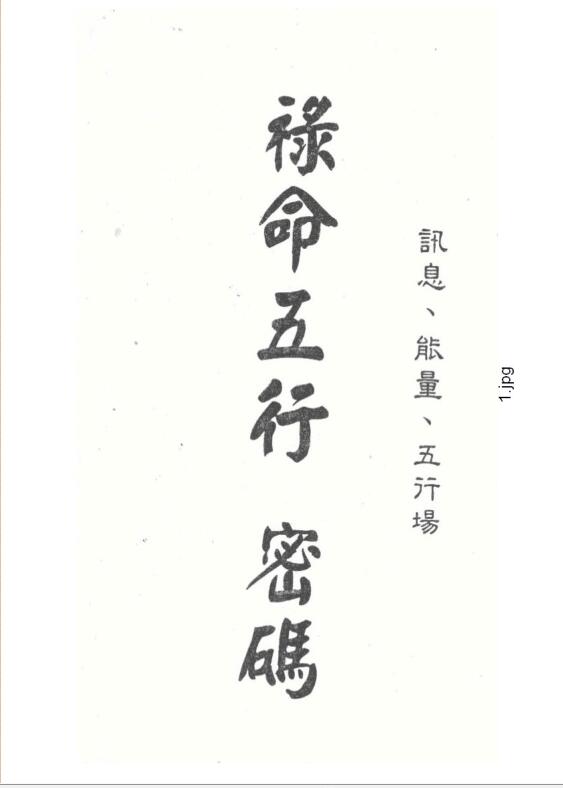 訊息、能量、五行場
祿命五行 密碼
1.jpg